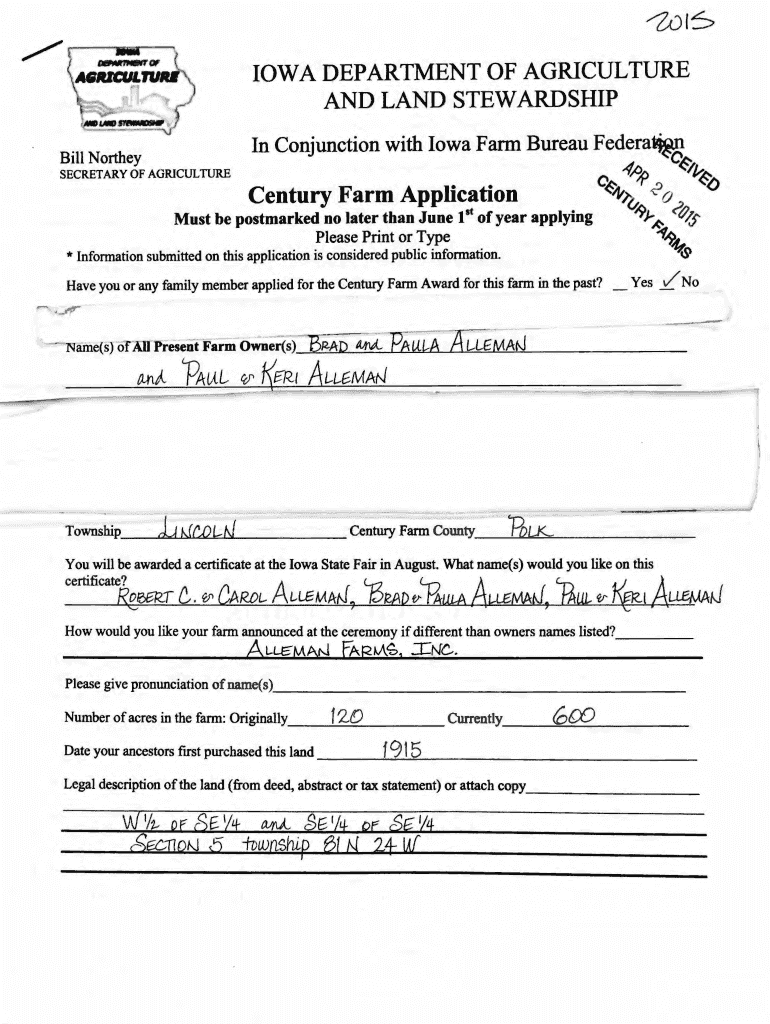 2015
IOWA
DEPARTMENT OF
AGRICULTURE
AND LAND STEWARDSHIP
IOWA DEPARTMENT OF AGRICULTURE
AND LAND STEWARDSHIP
Bill Northey
SECRETARY OF AGRICULTURE
In Conjunction with Iowa Farm Bureau Federation
RECEIVED
APR 20 2015
CENTURY FARMS
Century Farm Application
Must be postmarked no later than June 1st of year applying
Please Print or Type
* Information submitted on this application is considered public information.
Have you or any family member applied for the Century Farm Award for this farm in the past? __ Yes ✓ No
Name(s) of All Present Farm Owner(s) BRAD and PAULA ALLEMAN
and PAUL & KERI ALLEMAN
Township LINCOLN Century Farm County POLK
You will be awarded a certificate at the Iowa State Fair in August. What name(s) would you like on this
certificate?
ROBERT C. & CAROL ALLEMAN, BRAD & PAULA ALLEMAN, PAUL & KERI ALLEMAN
How would you like your farm announced at the ceremony if different than owners names listed?
ALLEMAN FARMS, INC.
Please give pronunciation of name(s)
Number of acres in the farm: Originally 120 Currently 600
Date your ancestors first purchased this land 1915
Legal description of the land (from deed, abstract or tax statement) or attach copy
W 1/2 OF SE 1/4 and SE 1/4 OF SE 1/4
SECTION 5 township 81 N 24 W